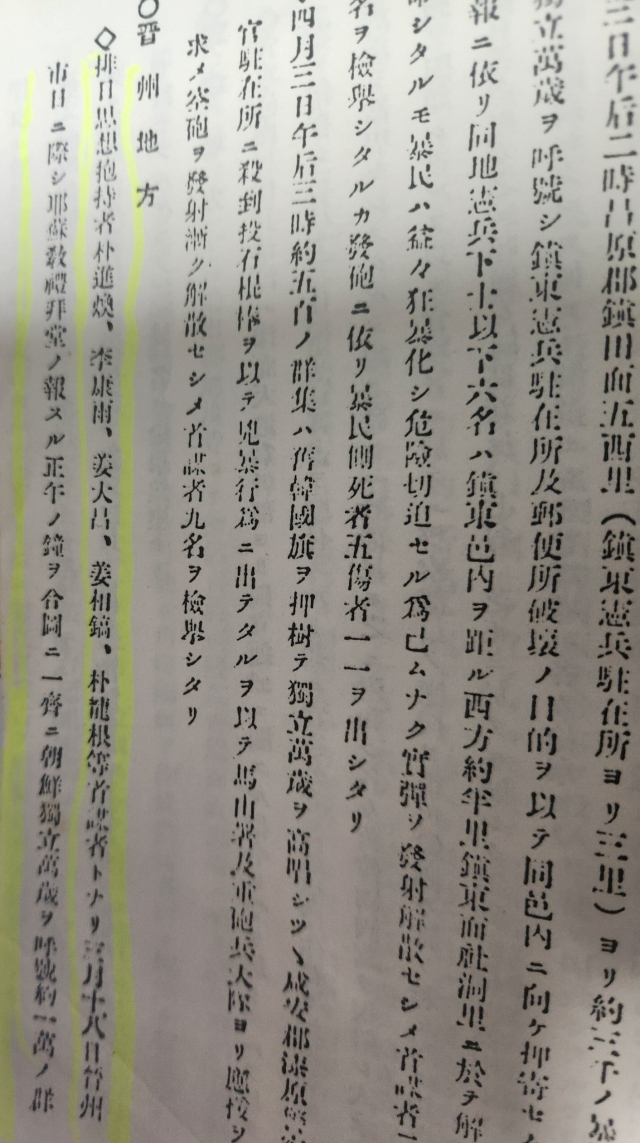 三日午后二時昌原郡鎭田面五西里(鎭東憲兵駐在所ヨリ三里)ヨリ約三千ノ暴
獨立萬歲ヲ呼號シ鎭東憲兵駐在所及郵便所破壞ノ目的ヲ以テ同邑內ニ向ケ押寄セ
報ニ依リ同地憲兵下士以下六名ハ鎭東邑內ヲ距ル西方約半里鎭東面社洞里ニ於テ解
シタルモ暴民ハ益々狂暴化シ危險切迫セル爲已ムナク實彈ヲ發射解散セシメ首謀者
名ヲ檢擧シタルカ發砲ニ依リ暴民側死者五傷者一一ヲ出シタリ
四月三日午后三時約五百ノ群集ハ舊韓國旗ヲ押樹テ獨立萬歲ヲ高唱シツヽ咸安郡漆原警
官駐在所ニ殺到投石棍棒ヲ以テ兇暴行爲ニ出テタルヲ以テ馬山署及重砲兵大隊ヨリ應援ヲ
求メ空砲ヲ發射漸ク解散セシメ首謀者九名ヲ檢擧シタリ
○晋州地方
◇排日思想抱持者朴進煥、李康雨、姜大昌、姜相鎬、朴龍根等首謀者トナリ三月十八日晉州
市日ニ際シ耶蘇敎禮拜堂ノ報スル正午ノ鐘ヲ合圖ニ一齊ニ朝鮮獨立萬歲ヲ呼號約一萬ノ群